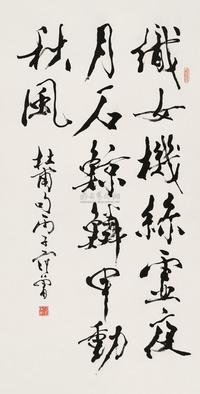 織女機絲虛夜
月石鯨鱗甲動
秋風
杜甫句丙子